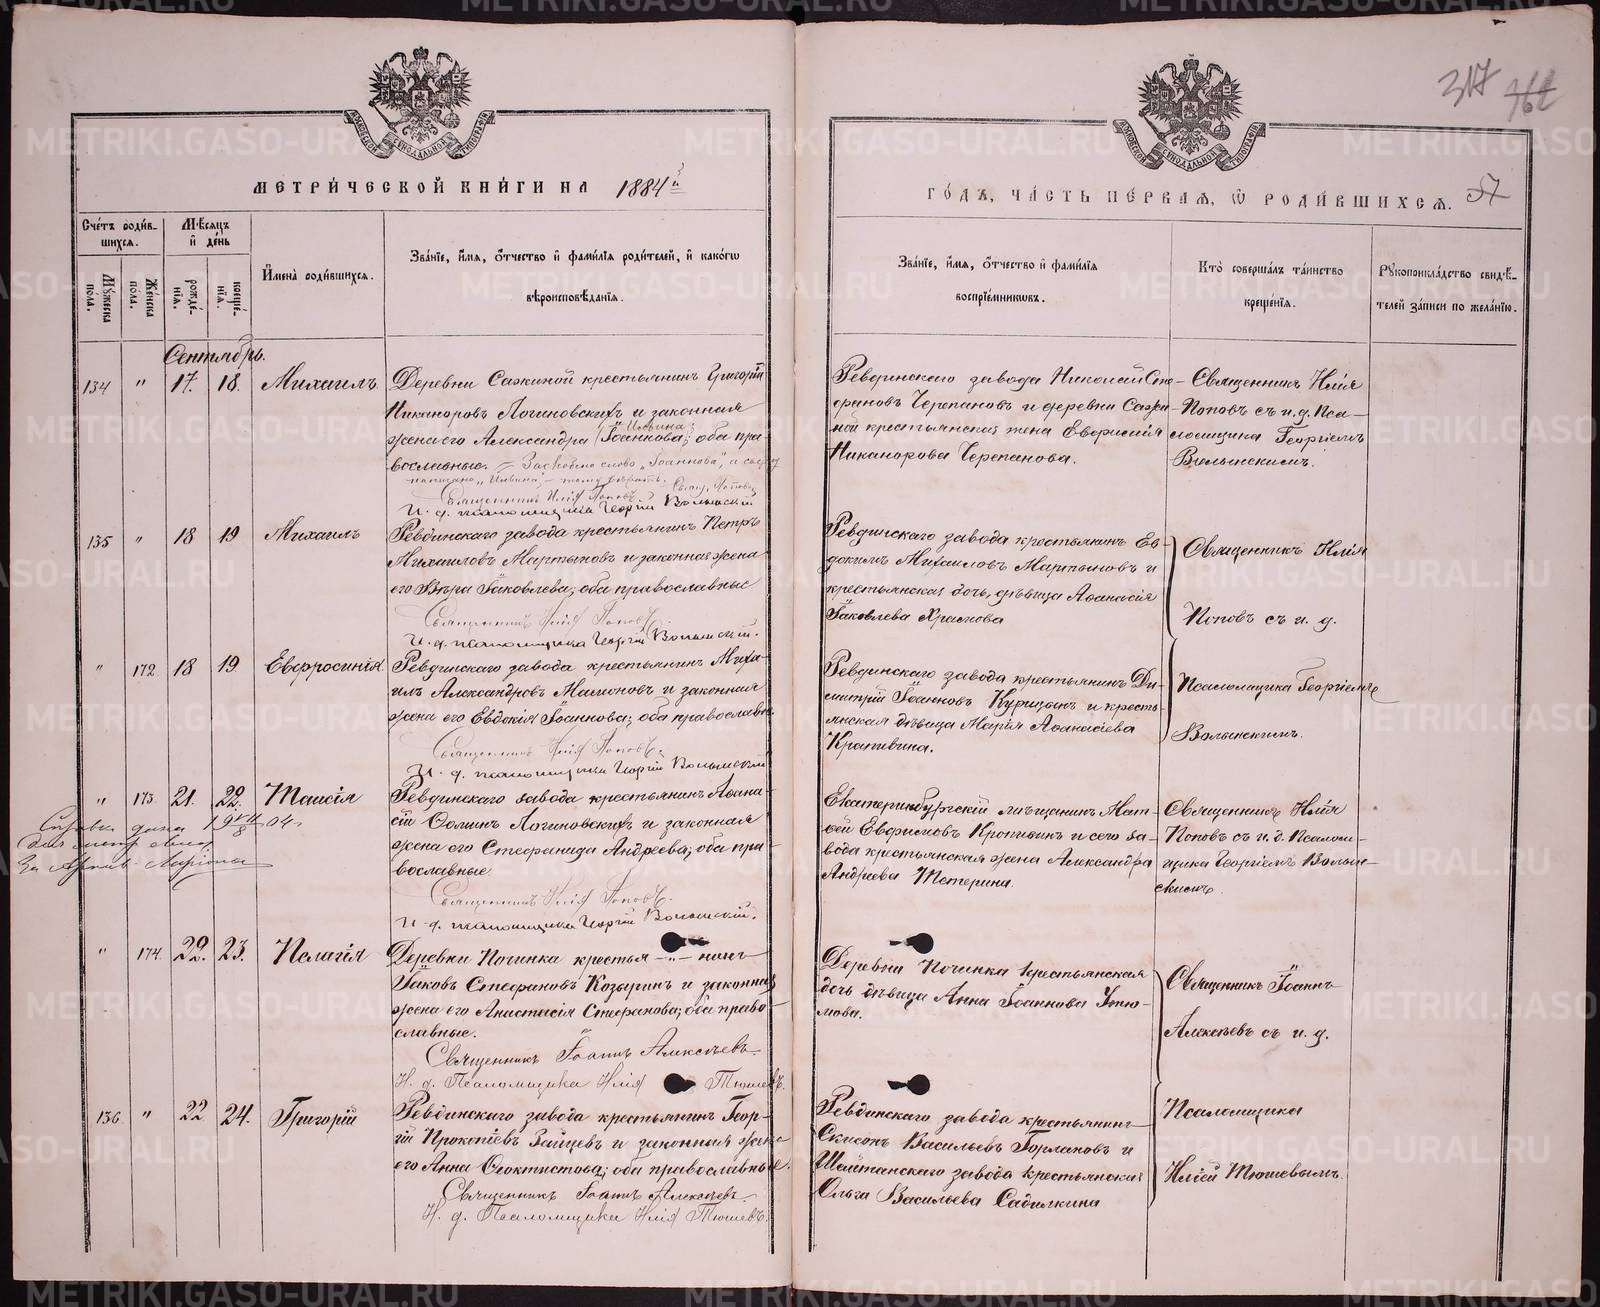 317
МЕТРИ́ЧЕСКОЙ КНИ́ГИ НА 1884й
ГО́ДЪ, ЧА́СТЬ ПЕ́РВАЯ, Ѡ РОДИ́ВШИХСЯ. 57
Сче́тъ роди́в-
шихся.
Мꙋ́жеска пола.
Же́нска пола.
Мѣсяцъ
и҆ де́нь
рожде́-
нїя.
креще́-
нїя.
И҆мена̀ роди́вшихся.
Зва́нїе, и҆́мя, ѻ҆́тчество и҆ фами́лїя роди́телей, и҆ како́гѡ
вѣроисповѣ́данїя.
Зва́нїе, и҆́мя, ѻ҆́тчество и҆ фами́лїя
воспрїе́мниковъ.
Кто̀ соверша́лъ та́инство
креще́нїя.
Рꙋкоприкла́дство свидѣ́-
телей за́писи по жела́нїю.
Сентябрь.
134 " 17. 18. Михаилъ
Деревни Сажиной крестьянинъ Григорій
Никаноровъ Логиновскихъ и законная
жена его Александра Іоаннова; оба пра-
Ильина
вославные. — Зачеркнуто слово „Іоаннова", а сверху
написано „Ильина",
Священникъ Илія Поповъ
И. д. псаломщика Георгій Волынскій
Ревдинскаго завода Николай Сте-
фановъ Черепановъ и деревни Сажи-
ной крестьянская жена Евфимія
Никанорова Черепанова.
Священникъ Илія
Поповъ съ и. д. Пса-
ломщика Георгіемъ
Волынскимъ.
135 " 18 19 Михаилъ
Ревдинскаго завода крестьянинъ Петръ
Михаиловъ Мартыновъ и законная жена
его Вѣра Іаковлева; оба православные
Священникъ Илія Поповъ.
И. д. псаломщика Георгій Волынскій.
Ревдинскаго завода крестьянинъ Ев-
докимъ Михаиловъ Мартыновъ и
крестьянская дочь, дѣвица Аѳанасія
Іаковлева Храмова
Священникъ Илія
Поповъ съ и. д.
" 172 18 19 Евфросинія
Ревдинскаго завода крестьянинъ Миха-
илъ Александровъ Мамоновъ и законная
жена его Евдокія Іоаннова; оба православн.
Священникъ Илія Поповъ.
И. д. псаломщика Георгій Волынскій
Ревдинскаго завода крестьянинъ Ди-
митрій Іоанновъ Курицынъ и кресть-
янская дѣвица Марія Аѳанасіева
Крапивина.
Псаломщика Георгіемъ
Волынскимъ.
" 173 21. 22. Таисія
Справка дана 19 VII/8 04
Ревдинскаго завода крестьянинъ Аѳана-
сій Ѳоминъ Логиновскихъ и законная
жена его Стефанида Андреева; оба пра-
вославные.
Священникъ Илія Поповъ.
И. д. псаломщика Георгій Волынскій.
Екатеринбургскій мѣщанинъ Мат-
вей Евфимовъ Кропивинъ и сего за-
вода крестьянская жена Александра
Андреева Тетерина.
Священникъ Илія
Поповъ съ и. д. Псалом-
щика Георгіемъ Волын-
скимъ.
" 174 22. 23. Пелагія
Деревни Починка крестья — " — нинъ
Іаковъ Стефановъ Козыринъ и законная
жена его Анастасія Стефанова; оба право-
славные.
Священникъ Іоаннъ Алексѣевъ.
И. д. Псаломщика Илія Тюшевъ.
Деревни Починка крестьянская
дочь дѣвица Анна Іоаннова Утю-
мова.
Священникъ Іоаннъ
Алексѣевъ съ и. д.
136 " 22 24. Григорій
Ревдинскаго завода крестьянинъ Геор-
гій Прокопіевъ Зайцевъ и законная жена
его Анна Ѳеоктистова; оба православные.
Священникъ Іоаннъ Алексѣевъ.
И. д. Псаломщика Илія Тюшевъ.
Ревдинскаго завода крестьянинъ
Симонъ Васильевъ Горлановъ и
Шайтанскаго завода крестьянская
Ольга Васильева Садилкина
Псаломщика
Иліей Тюшевымъ.